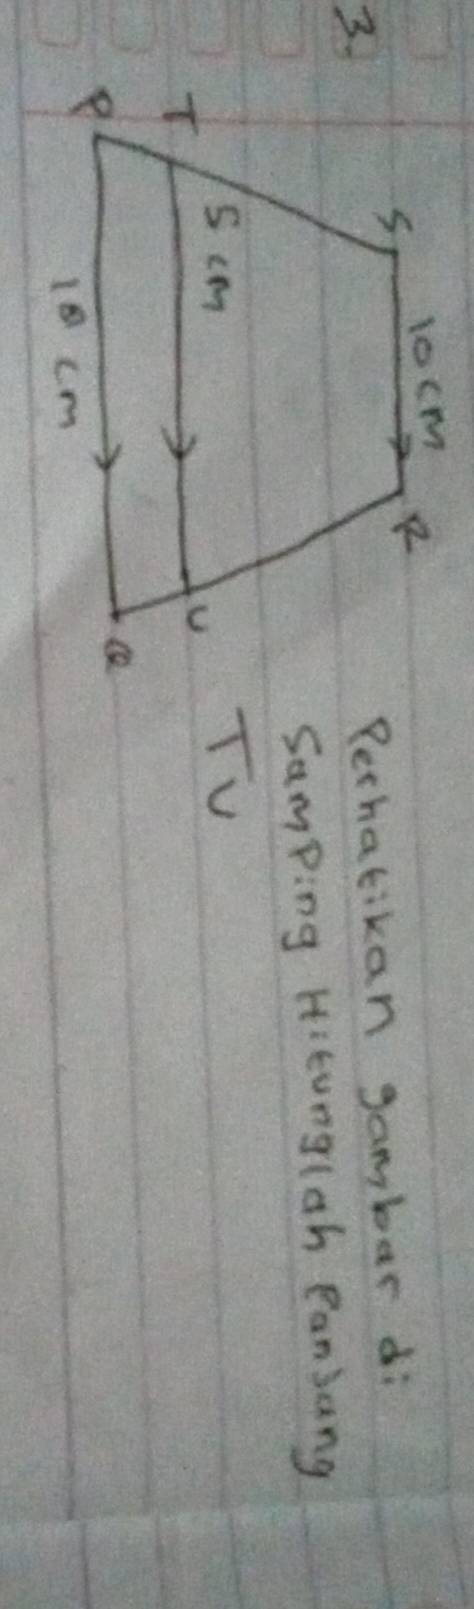 3.
S 10 cm R
5 cm
T U
P Q
18 cm
Perhatikan gambar di
SamPing Hitunglah Panjang
TU